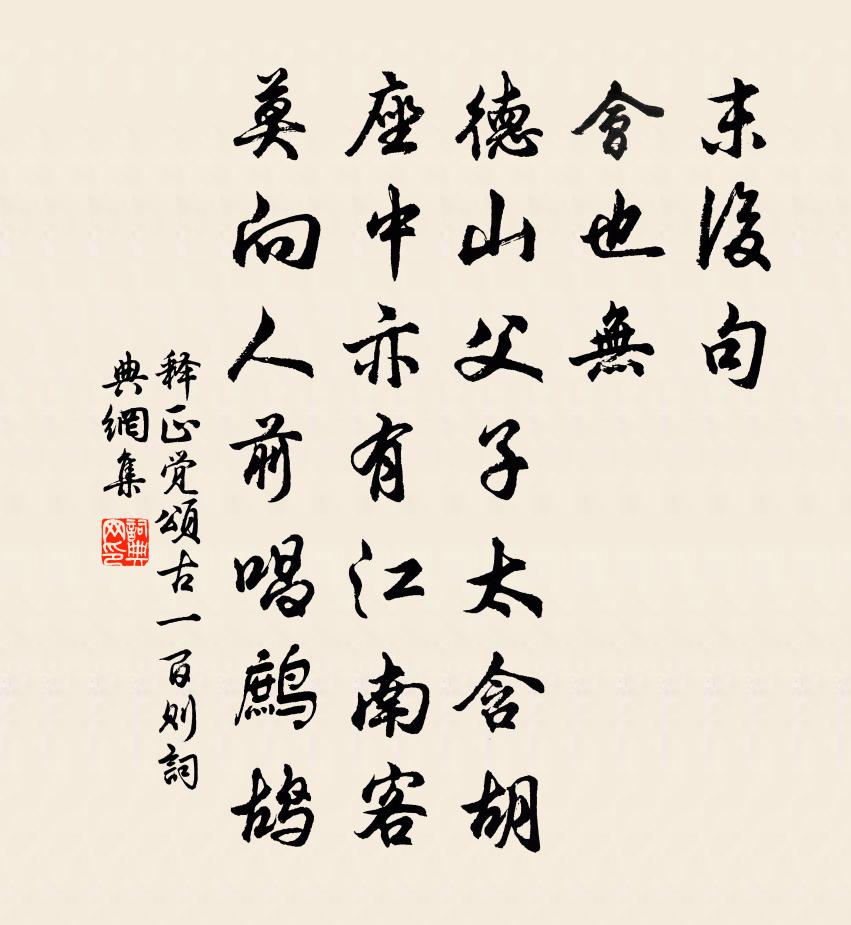 末後句
會也無
德山父子太含胡
座中亦有江南客
莫向人前唱鷓鴣
释正觉頌古一百则詞
典網集
詞典网印